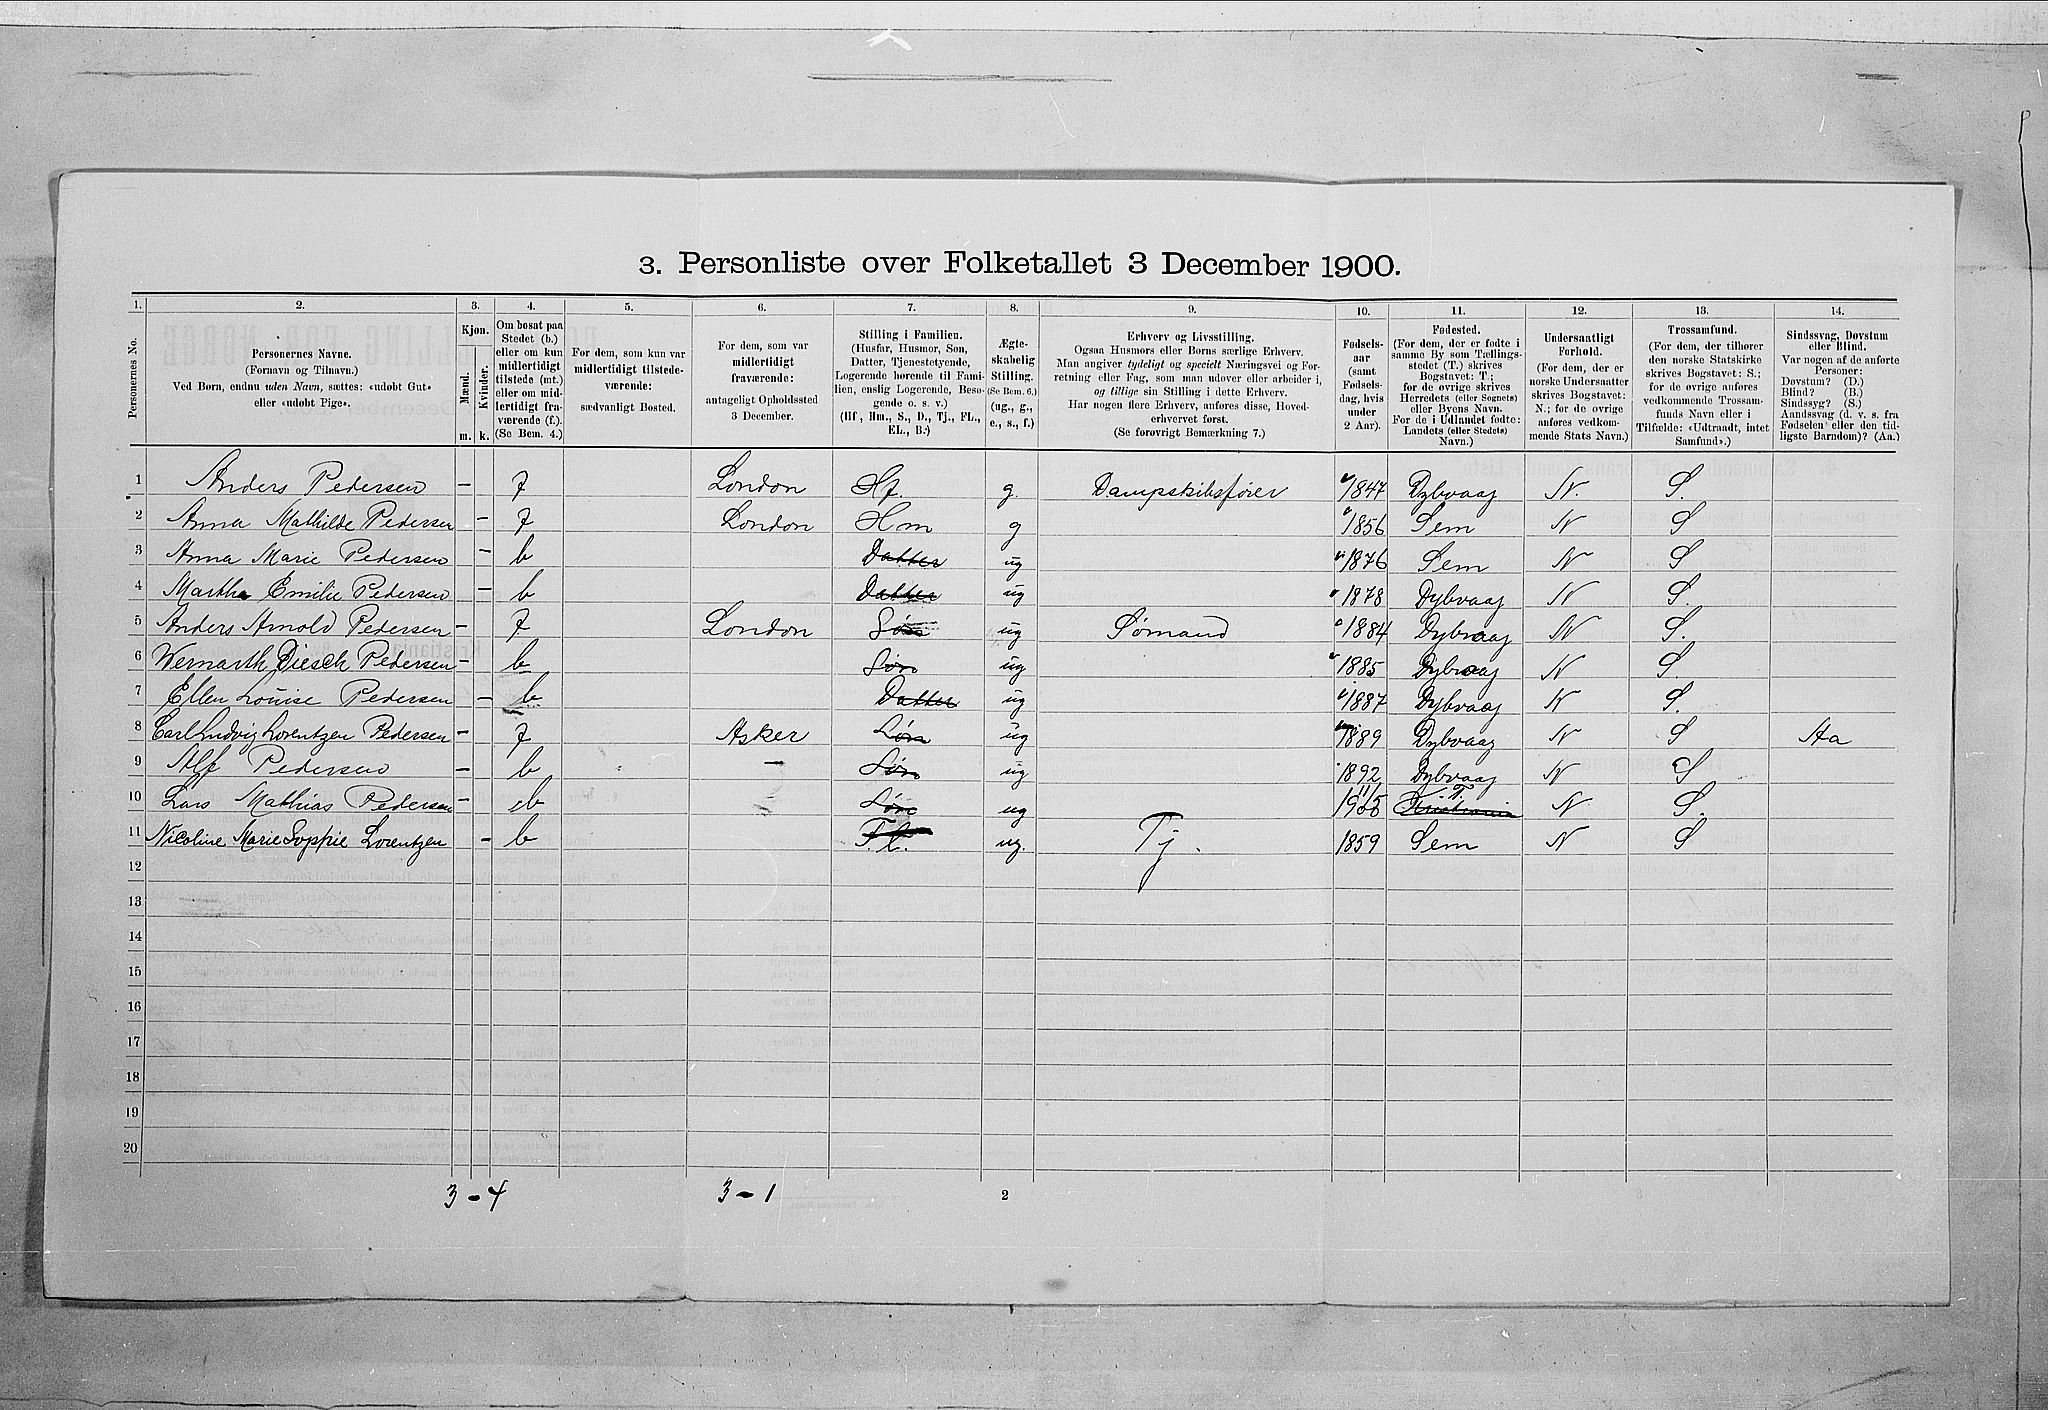 3. Personliste over Folketallet 3 December 1900.
1. 2. 3. 4. 5. 6. 7. 8. 9. 10. 11. 12. 13. 14.
Personernes No.
Personernes Navne.
(Fornavn og Tilnavn.)
Ved Børn, endnu uden Navn, sættes: «udøbt Gut»
eller «udøbt Pige».
Kjøn.
Mænd.
Kvinder.
m. k.
Om bosat paa
Stedet (b.)
eller om kun
midlertidigt
tilstede (mt.)
eller om mid-
lertidigt fra-
værende (f.).
(Se Bem. 4.)
For dem, som kun var
midlertidigt tilstede-
værende:
sædvanligt Bosted.
For dem, som var
midlertidigt
fraværende:
antageligt Opholdssted
3 December.
Stilling i Familien.
(Husfar, Husmor, Søn,
Datter, Tjenestetyende,
Logerende hørende til Fami-
lien, enslig Logerende, Besø-
gende o. s. v.)
(Hf, Hm., S., D., Tj., FL.,
EL., B.)
Ægte-
skabelig
Stilling.
(Se Bem. 6.)
(ug., g.,
e., s., f.)
Erhverv og Livsstilling.
Ogsaa Husmors eller Børns særlige Erhverv.
Man angiver tydeligt og specielt Næringsvei og For-
retning eller Fag, som man udøver eller arbeider i,
og tillige sin Stilling i dette Erhverv.
Har nogen flere Erhverv, anføres disse, Hoved-
erhvervet først.
(Se forøvrigt Bemærkning 7.)
Fødsels-
aar
(samt
Fødsels-
dag, hvis
under
2 Aar).
Fødested.
(For dem, der er fødte i
samme By som Tællings-
stedet (T.) skrives
Bogstavet: T.;
for de øvrige skrives
Herredets (eller Sognets)
eller Byens Navn.
For de i Udlandet fødte:
Landets (eller Stedets)
Navn.)
Undersaatligt
Forhold.
(For dem, der er
norske Undersaatter
skrives Bogstavet:
N.; for de øvrige
anføres vedkom-
mende Stats Navn.)
Trossamfund.
(For dem, der tilhører
den norske Statskirke
skrives Bogstavet: S.;
for de øvrige anføres
vedkommende Trossam-
funds Navn eller i
Tilfælde: «Udtraadt, intet
Samfund».)
Sindssvag, Døvstum
eller Blind.
Var nogen af de anførte
Personer:
Døvstum? (D.)
Blind? (B.)
Sindssyg? (S.)
Aandssvag (d. v. s. fra
Fødselen eller den tid-
ligste Barndom)? (Aa.)
1 Anders Pedersen – f London Hf. g. Dampskibsfører 1847 Dybvaag N. S.
2 Anna Mathilde Pedersen – f London Hm g 1856 Sem N S
3 Anna Marie Pedersen – b Datter ug 1876 Sem N S
4 Martha Emilie Pedersen – b Datter ug 1878 Dybvaag N S.
5 Anders Arnold Pedersen – f London Søn ug Sømand 1884 Dybvaag N S.
6 Wernarth Diesch Pedersen – b Søn ug 1885 Dybvaag N S.
7 Ellen Louise Pedersen – b Datter ug 1887 Dybvaag N S.
8 Carl Ludvig Lorentzen Pedersen – f Asker Søn ug 1889 Dybvaag N S Aa
9 Alf Pedersen – b – Søn ug 1892 Dybvaag N S
10 Lars Mathias Pedersen – b Søn ug T. Kristiania N S.
11 Nicoline Marie Sophie Lorentzen – b F. l. ug. Tj. 1859 Sem N S
12
13
14
15
16
17
18
19
20
3 – 4 3 – 1 2